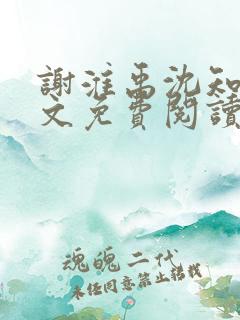 謝淮禹沈知
文免費閱讀
魂魄二代
未经同意禁止转载